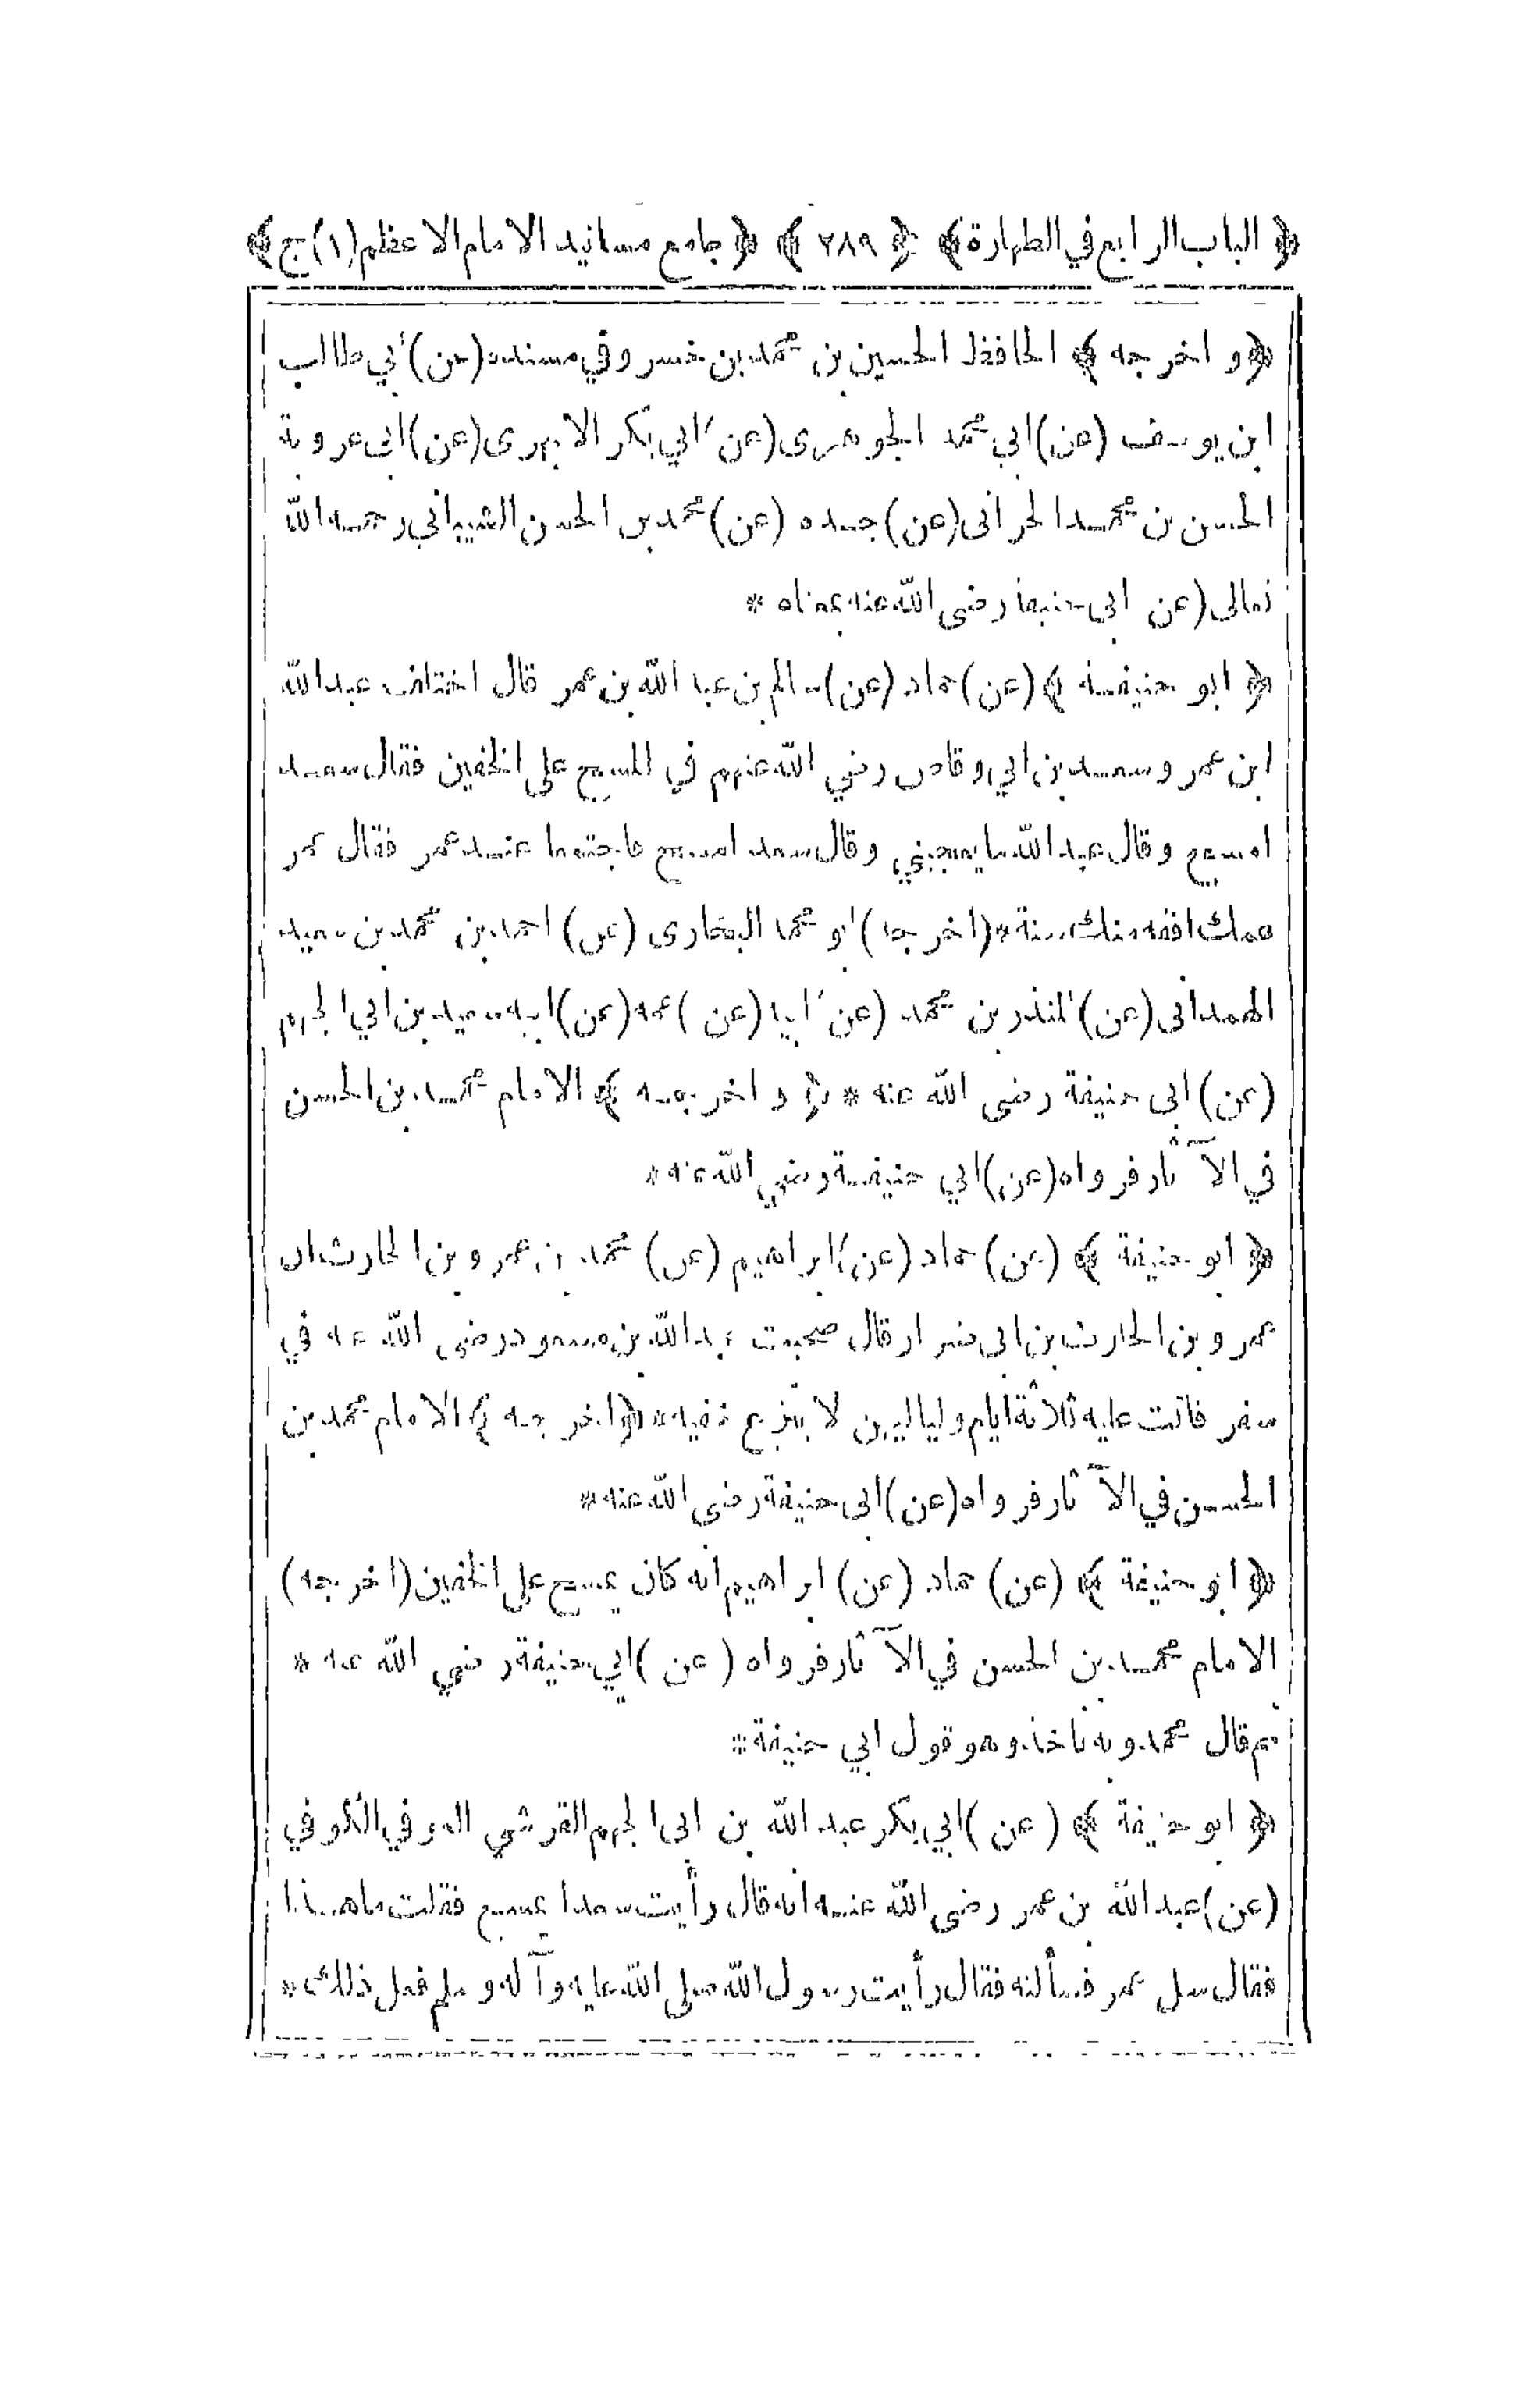 ﴿ الباب الرابع في الطهارة ﴾ ﴿ ٢٨٩ ﴾ ﴿ جامع مسانيد الامام الاعظم (١) ج ﴾
﴿ و اخرجه ﴾ الحافظ الحسين بن محمد بن خسرو في مسنده (عن) أبي طالب
ابن يوسف (عن) ابي محمد الجوهرى (عن) ابي بكر الابهرى (عن) ابى عروبة
الحسن بن محمد الحرانى (عن) جده (عن) محمد بن الحسن الشيبانى رحمه الله
تعالى (عن) ابى حنيفة رضى الله عنه بمعناه *
﴿ ابو حنيفة ﴾ (عن) حماد (عن) سالم بن عبد الله بن عمر قال اختلف عبد الله
ابن عمر و سعد بن ابي وقاص رضي الله عنهم في المسح على الخفين فقال سعد
امسح وقال عبد الله ما يعجبني وقال سعد امسح فاجتمعا عند عمر فقال عمر
عمك افقه منك سنة * (اخرجه) ابو محمد البخارى (عن) احمد بن محمد بن سعيد
الهمدانى (عن) المنذر بن محمد (عن) ابيه (عن) عمه (عن) ابيه سعيد بن ابي الجهم
(عن) ابى حنيفة رضى الله عنه * ﴿ و اخرجه ﴾ الامام محمد بن الحسن
في الآثار فرواه (عن) ابي حنيفة رضي الله عنه *
﴿ ابو حنيفة ﴾ (عن) حماد (عن) ابراهيم (عن) محمد بن عمرو بن الحارث ان
عمرو بن الحارث بن ابى ضرار قال صحبت عبد الله بن مسعود رضى الله عنه في
سفر فاتت عليه ثلاثة ايام ولياليهن لا ينزع خفيه * ﴿ واخرجه ﴾ الامام محمد بن
الحسن في الآثار فرواه (عن) ابى حنيفة رضى الله عنه *
﴿ ابو حنيفة ﴾ (عن) حماد (عن) ابراهيم انه كان يمسح على الخفين (اخرجه)
الامام محمد بن الحسن في الآثار فرواه (عن) ابي حنيفة رضي الله عنه *
ثم قال محمد وبه ناخذ وهو قول ابي حنيفة *
﴿ ابو حنيفة ﴾ (عن) ابي بكر عبد الله بن ابى الجهم القرشي الكوفي
(عن) عبد الله بن عمر رضى الله عنه انه قال رأيت سعدا يمسح فقلت ما هذا
فقال سل عمر فسألته فقال رأيت رسول الله صلى الله عليه وآله وسلم فعل ذلك *